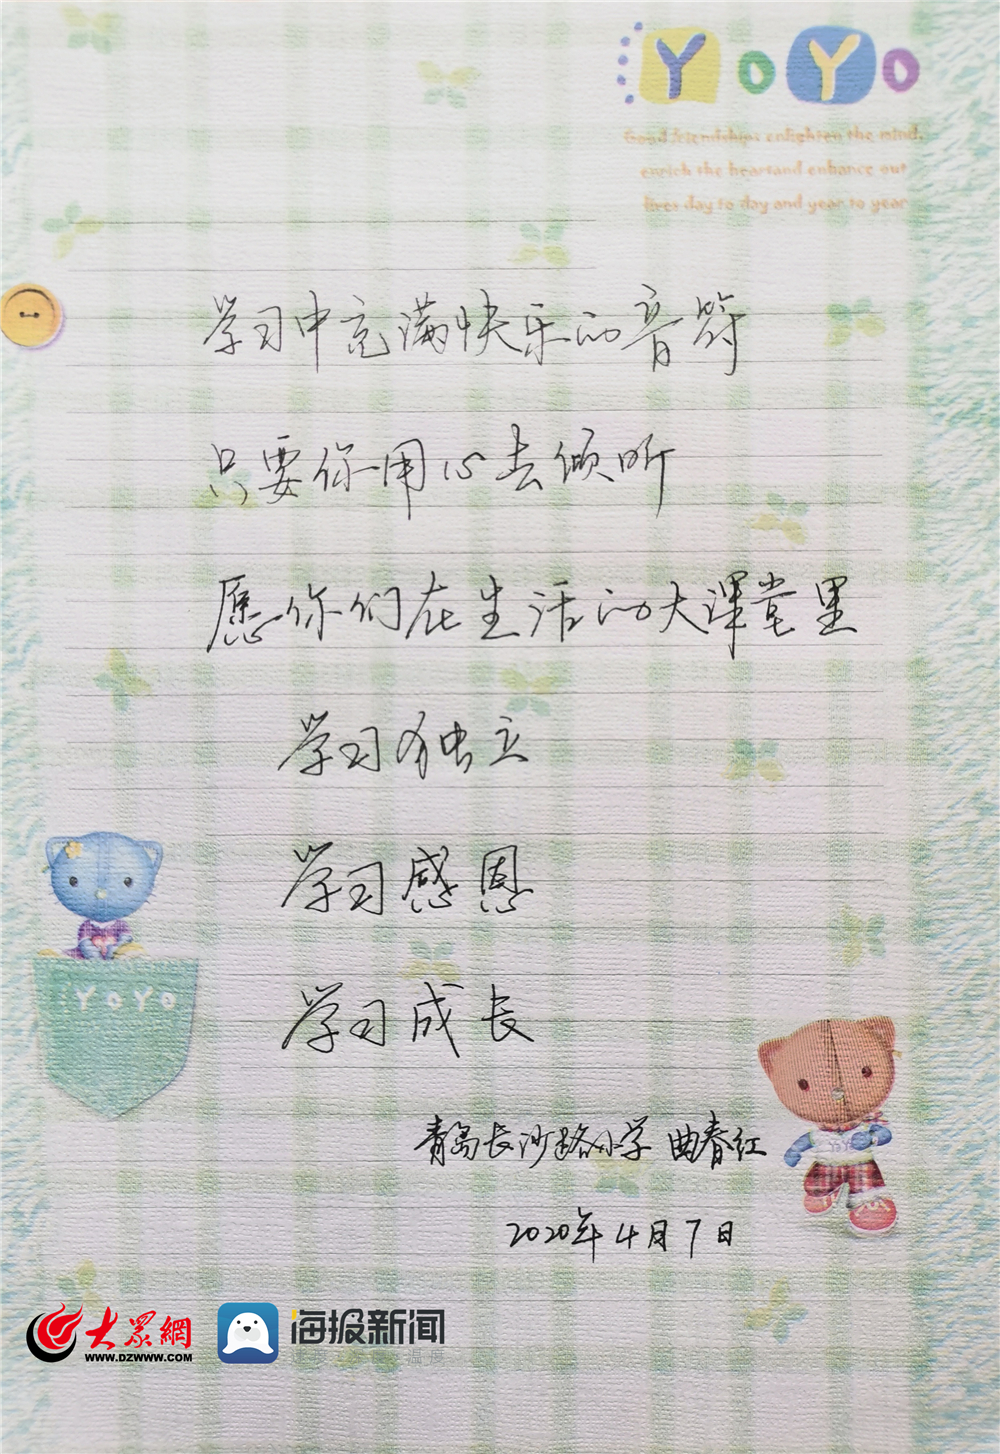 YoYo
Good friendships enlighten the mind,
enrich the heartand enhance out
lives day to day and year to year
学习中充满快乐的音符
只要你用心去倾听
愿你们在生活的大课堂里
学习独立
学习感恩
学习成长
YoYo
青岛长沙路小学 曲春红
2020年4月7日
大众網
WWW.DZWWW.COM
海报新闻